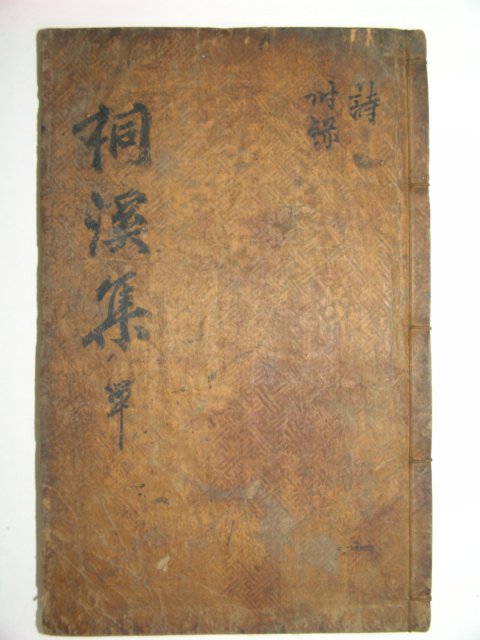 詩
附錄
桐溪集 單